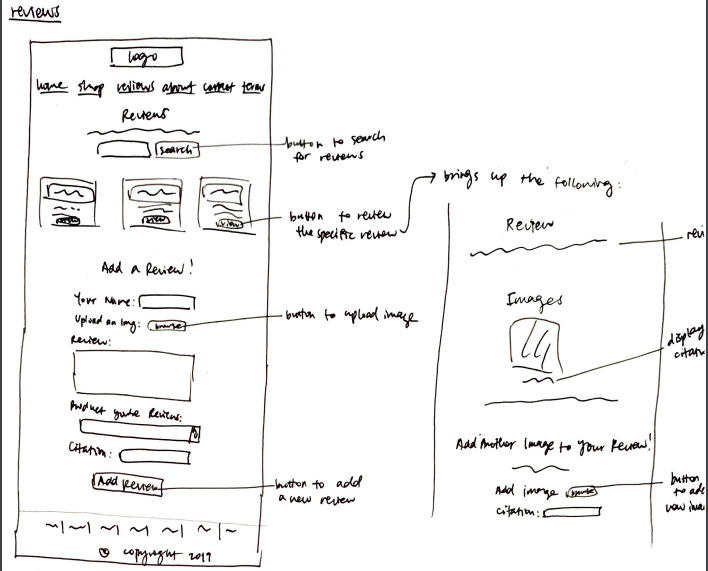 reviews
logo
home shop reviews about contact terms
Reviews
search
button to search
for reviews
view
view
button to review
the specific review
brings up the following:
Add a Review!
Your Name:
Upload an Img: browse
button to upload image
Review:
Product you're Review:
Citation:
Add Review
button to add
a new review
© copyright 2019
Review
revi
Images
display
citation
Add Another Image to Your Review!
Add image browse
Citation:
button
to add